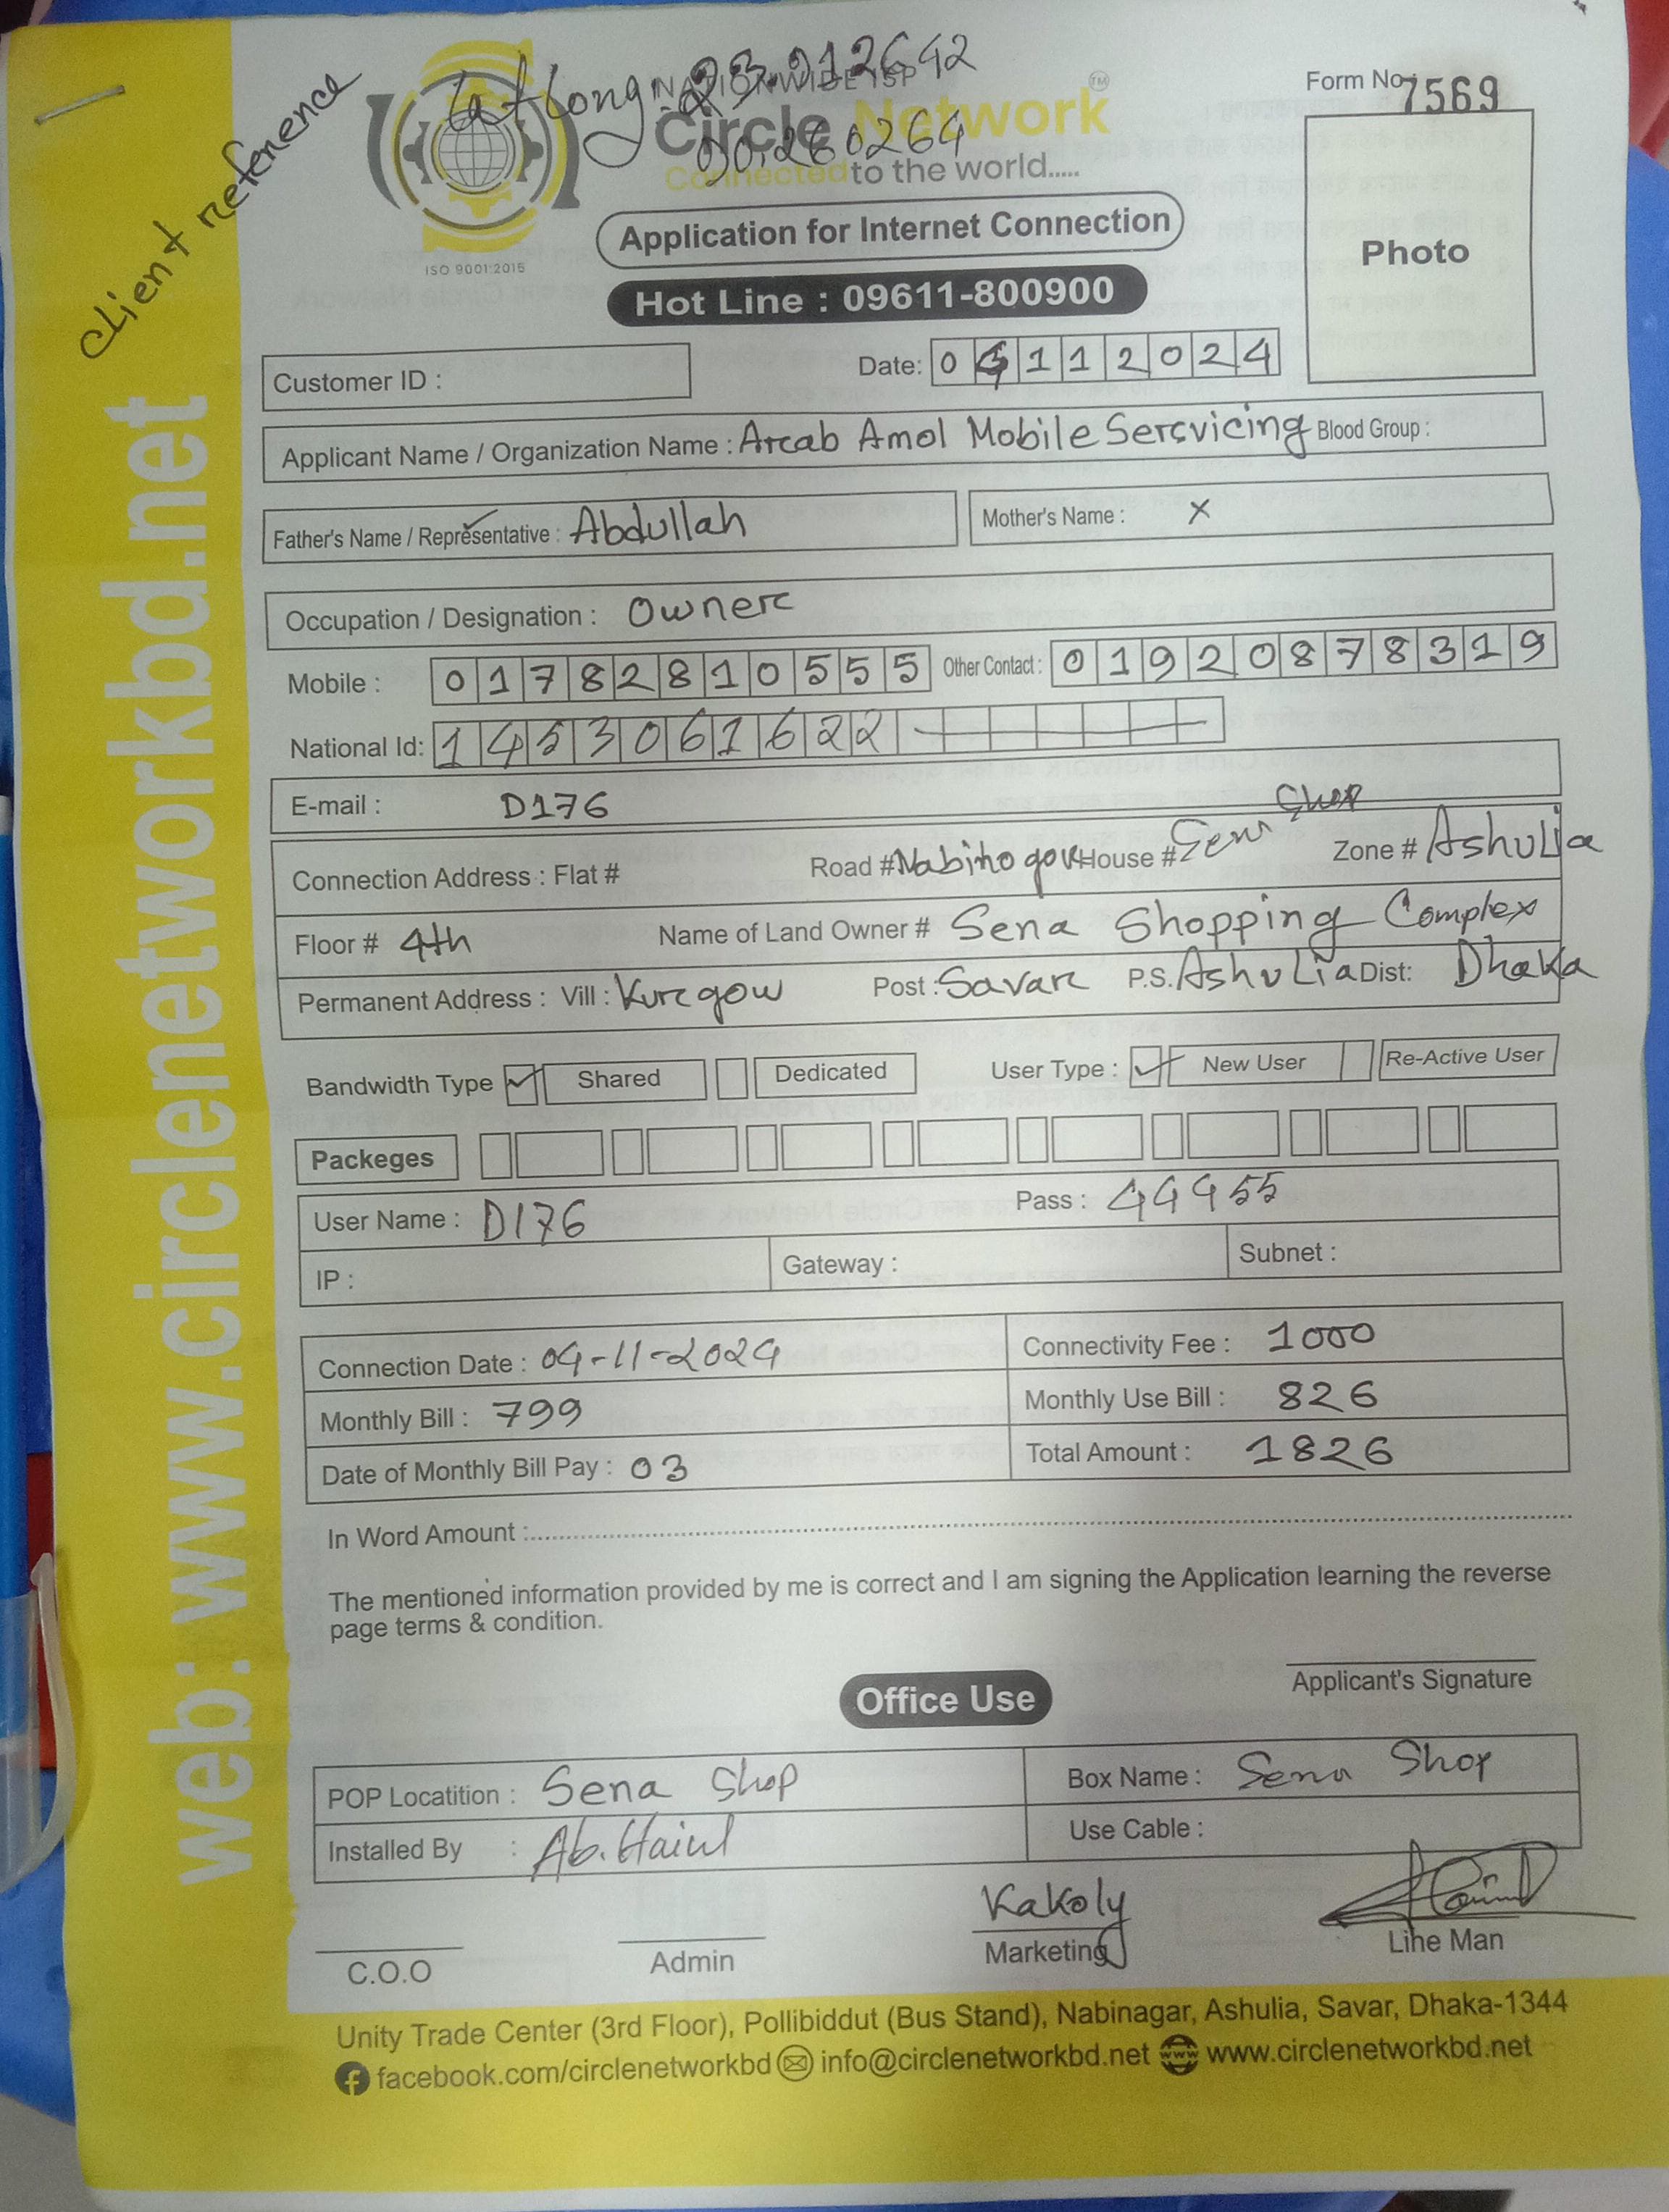 client reference
Lat Long: 23.912642
90.260264
NATIONWIDE ISP
Circle Network
Connected to the world.....
TM
ISO 9001:2015
Form No 7569
Photo
Application for Internet Connection
Hot Line : 09611-800900
Customer ID :
Date: 0 4 1 1 2 0 2 4
Applicant Name / Organization Name : Arcab Amol Mobile Sercvicing Blood Group :
Father's Name / Representative : Abdullah Mother's Name : X
Occupation / Designation : Ownerc
Mobile : 01782810555 Other Contact : 01920878319
National Id: 1453061622
E-mail : D176
Connection Address : Flat # Road # Nabinogor House # Sena Shop Zone # Ashulia
Floor # 4th Name of Land Owner # Sena Shopping Complex
Permanent Address : Vill : Kurcgow Post : Savarc P.S. Ashulia Dist: Dhaka
Bandwidth Type Shared Dedicated User Type : New User Re-Active User
Packeges
User Name : D176 Pass : 44455
IP : Gateway : Subnet :
Connection Date : 04-11-2024 Connectivity Fee : 1000
Monthly Bill : 799 Monthly Use Bill : 826
Date of Monthly Bill Pay : 03 Total Amount : 1826
In Word Amount :
The mentioned information provided by me is correct and I am signing the Application learning the reverse
page terms & condition.
Applicant's Signature
Office Use
POP Locatition : Sena Shop Box Name : Sena Shop
Installed By : Ab. Use Cable :
Kakoly
C.O.O Admin Marketing Lihe Man
Unity Trade Center (3rd Floor), Pollibiddut (Bus Stand), Nabinagar, Ashulia, Savar, Dhaka-1344
facebook.com/circlenetworkbd info@circlenetworkbd.net www www.circlenetworkbd.net
web: www.circlenetworkbd.net